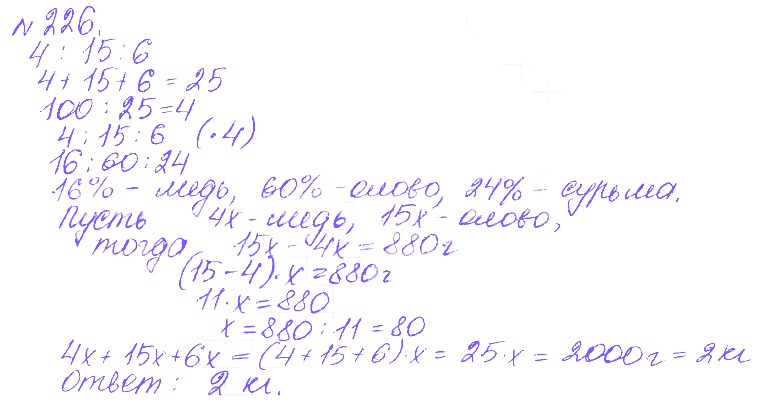 № 226.
4 : 15 : 6
4 + 15 + 6 = 25
100 : 25 = 4
4 : 15 : 6 (· 4)
16 : 60 : 24
16% - медь, 60% - олово, 24% - сурьма.
Пусть 4х - медь, 15х - олово,
тогда 15х - 4х = 880г
(15 - 4) · х = 880г
11 · х = 880
х = 880 : 11 = 80
4х + 15х + 6х = (4 + 15 + 6) · х = 25 · х = 2000г = 2кг
Ответ : 2 кг.